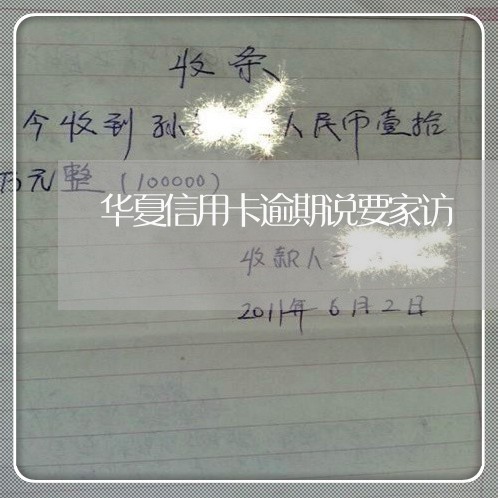 收条
今收到孙 人民币壹拾
万元整(100000)
华夏信用卡逾期说要家访
收款人
2011年6月2日